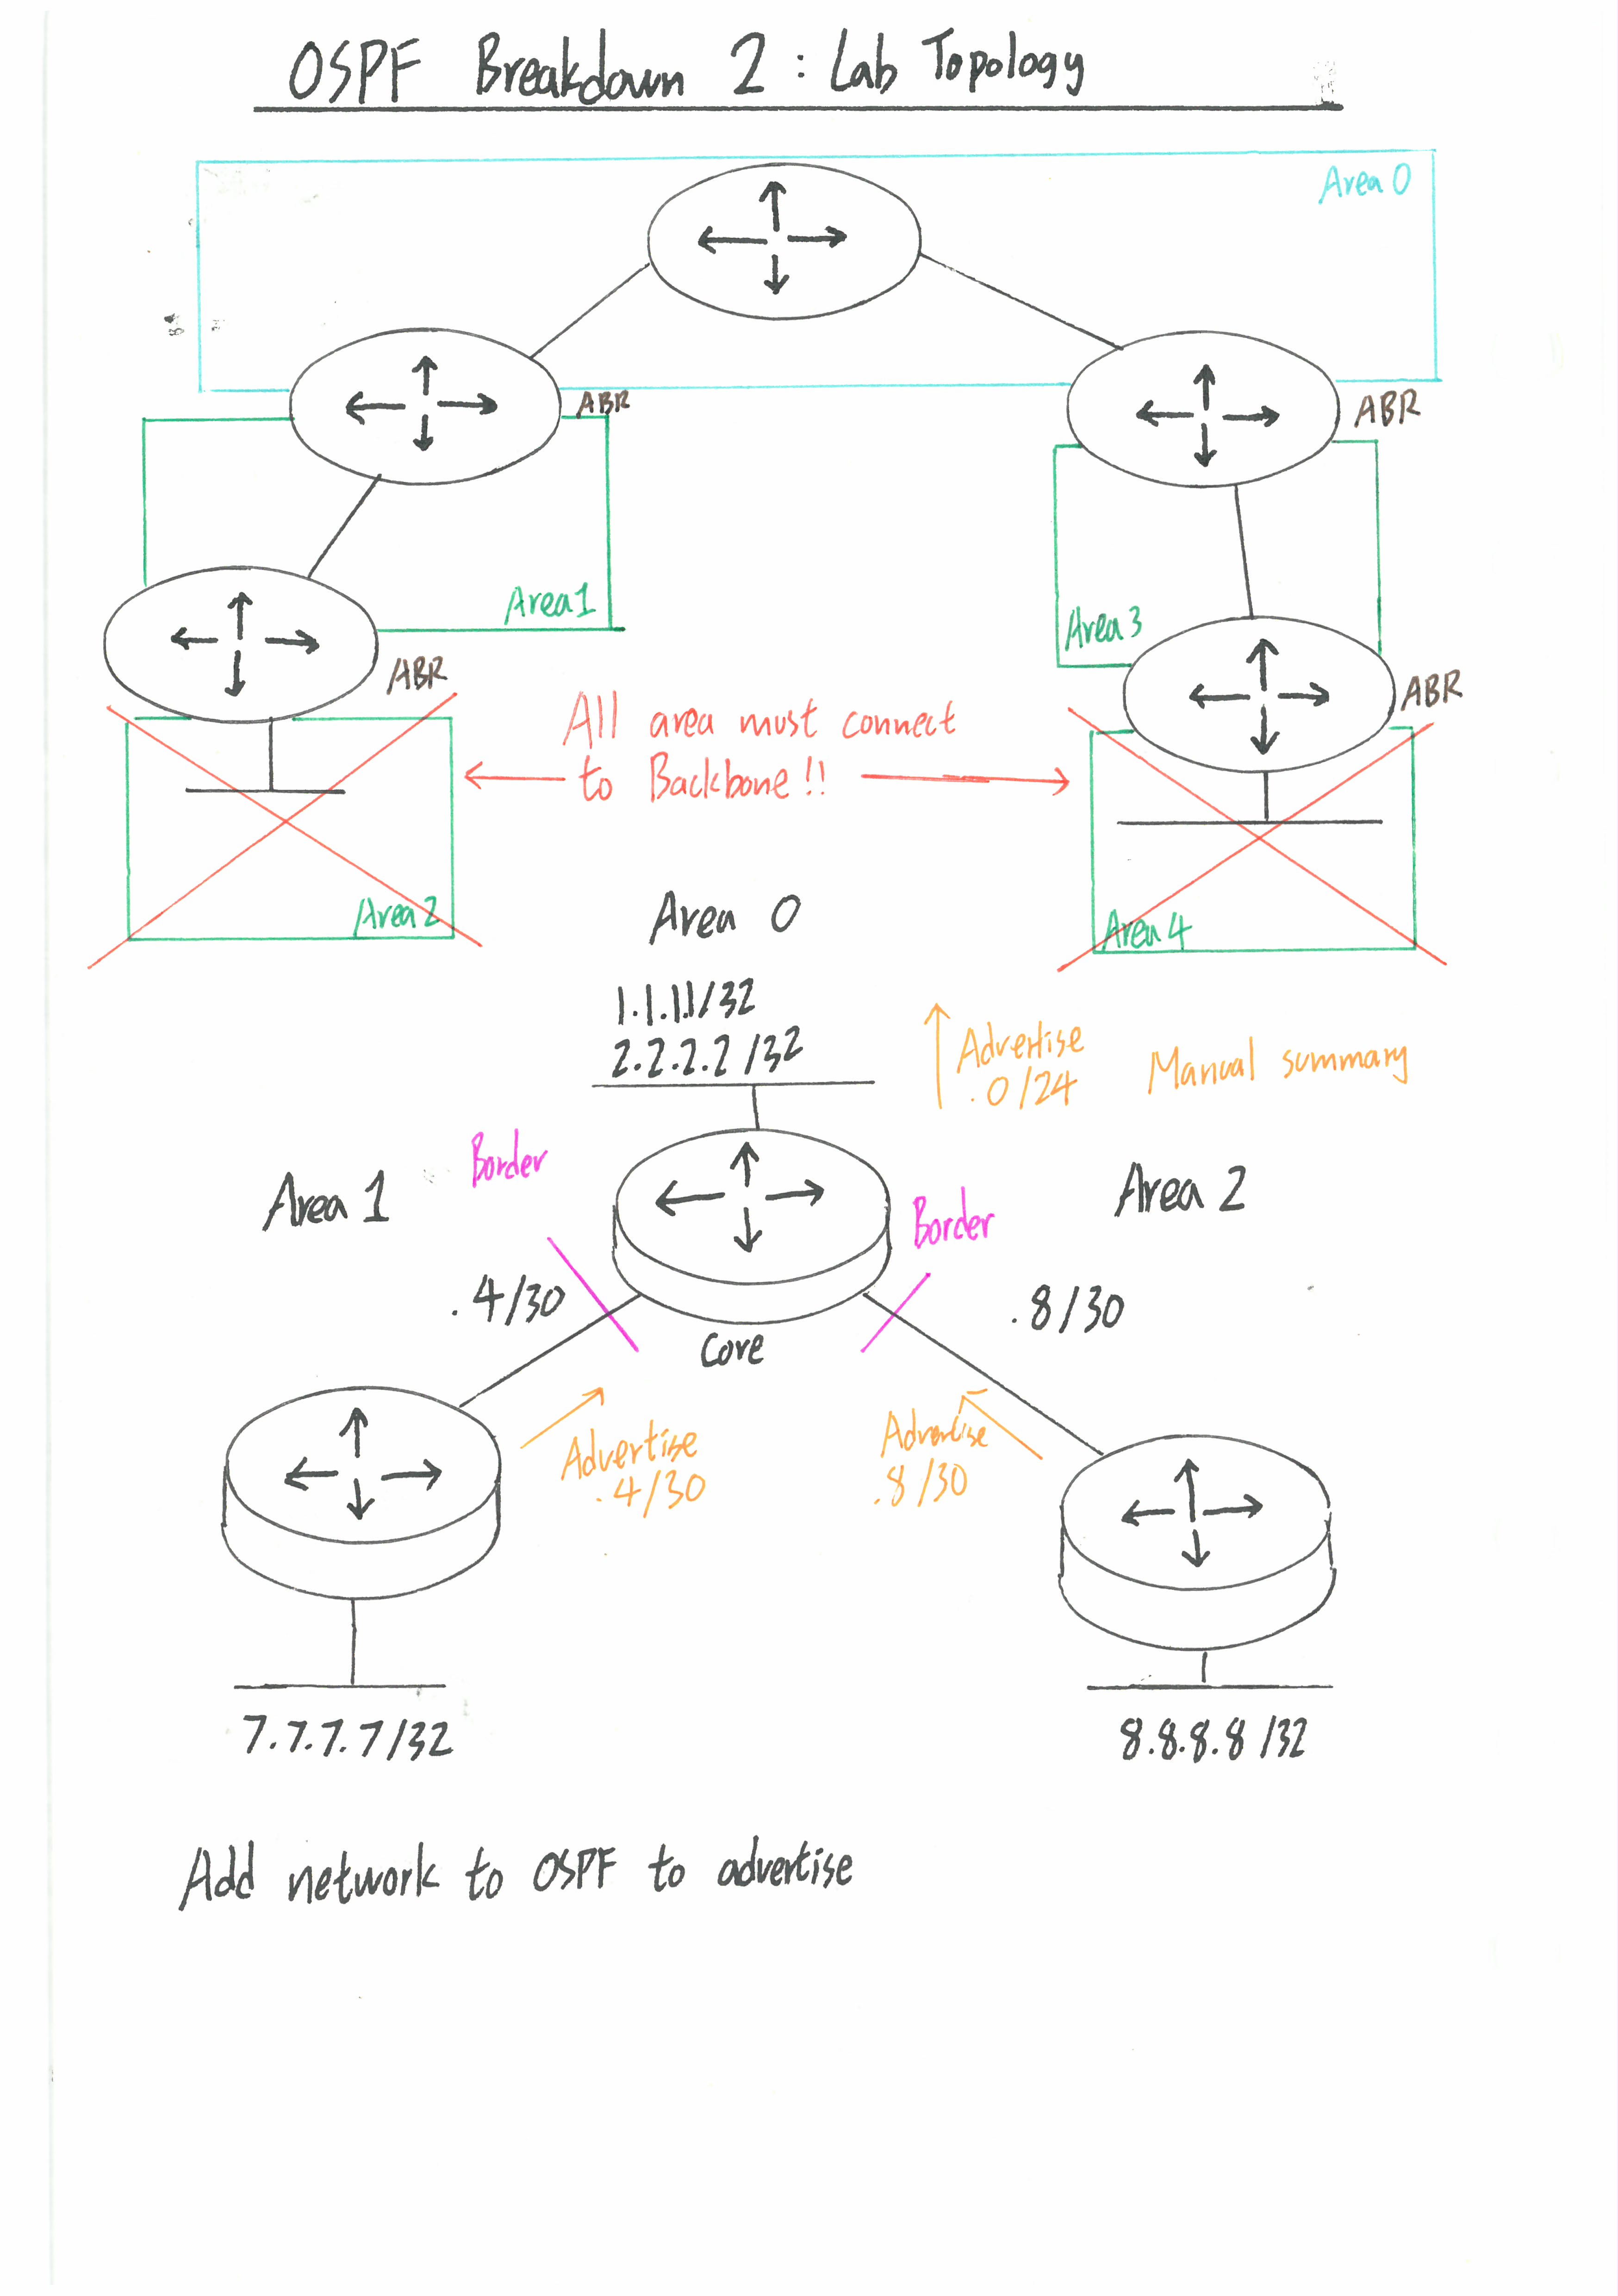 OSPF Breakdown 2 : Lab Topology
Area 0
ABR
ABR
Area 1
Area 3
ABR
ABR
All area must connect
to Backbone !!
Area 2
Area 4
Area 0
1.1.1.1/32
2.2.2.2/32
Advertise
.0/24
Manual summary
Border
Area 1
Area 2
Border
.4/30
.8/30
Core
Advertise
.4/30
Advertise
.8/30
7.7.7.7/32
8.8.8.8/32
Add network to OSPF to advertise